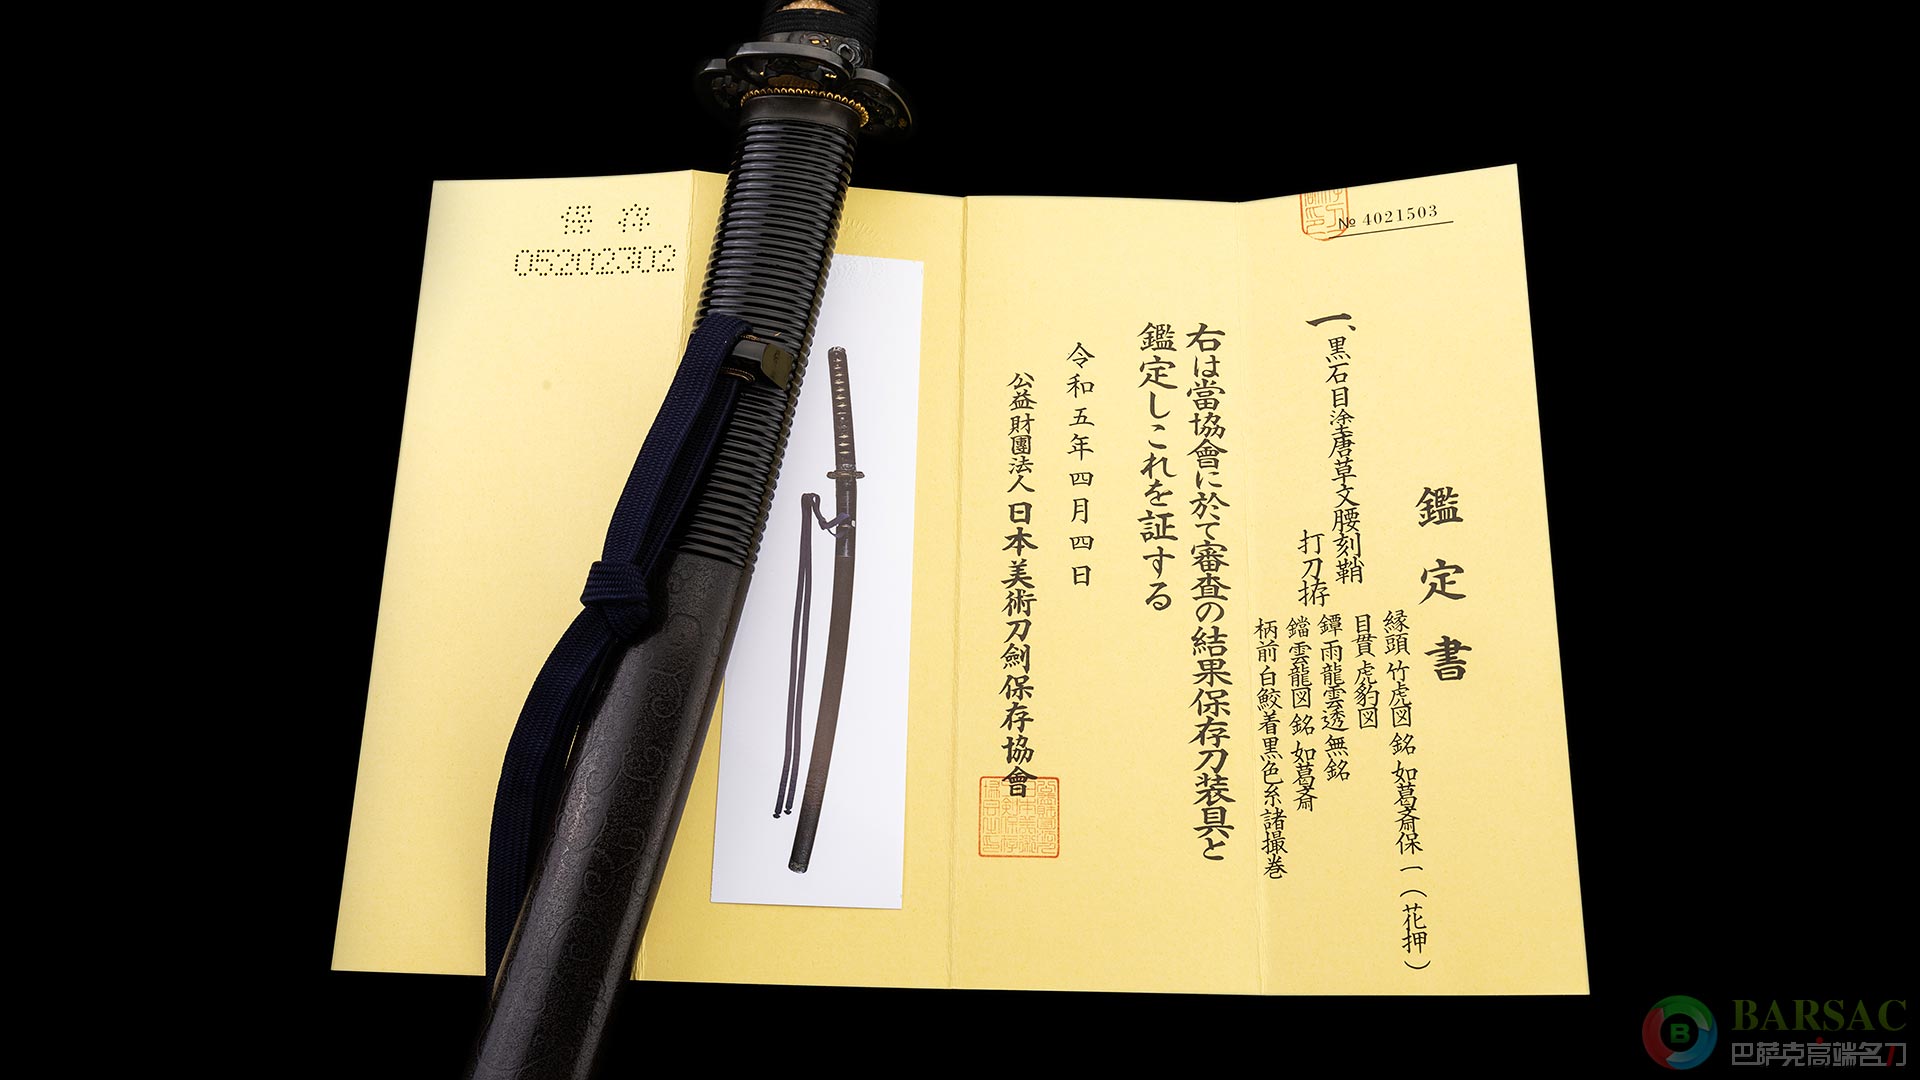 № 4021503
鑑定書
一、黒石目塗唐草文腰刻鞘
打刀拵
縁頭 竹虎図 銘 如葛斎保一(花押)
目貫 虎豹図
鐔 雨龍雲透 無銘
鐺 雲龍図 銘 如葛斎
柄前 白鮫着黒色糸諸撮巻
右は當協會に於て審査の結果保存刀装具と
鑑定しこれを証する
令和五年四月四日
公益財團法人 日本美術刀劍保存協會
保存
05202302
B
BARSAC
巴萨克高端名刀